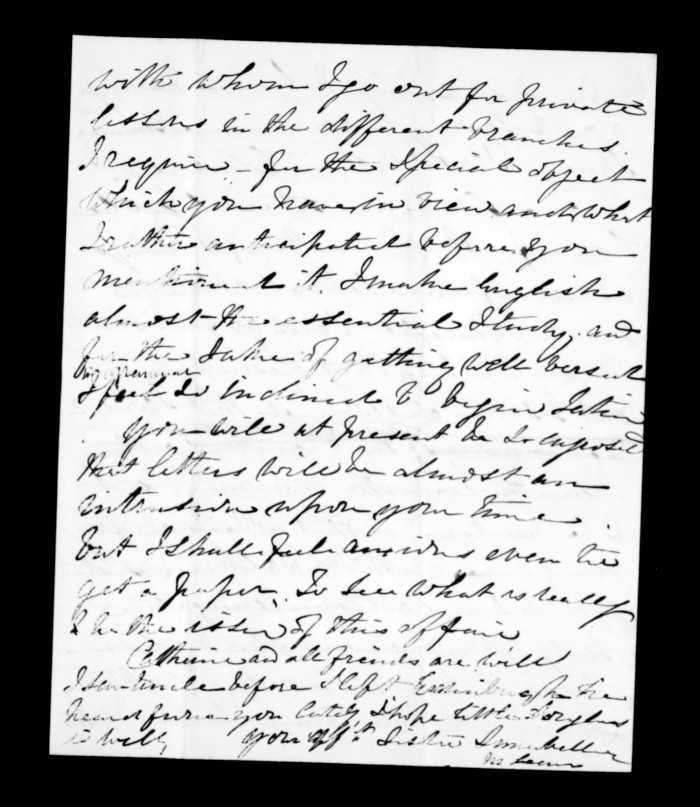 with whom I go out for private
lessons in the different branches
I require – for the special object
which you have in view and what
I rather anticipated before you
mentioned it. I make English
almost the essential Study, and
for the sake of getting well versed
in grammar
I feel so inclined to begin Latin
You will at present be so
that letters will be almost an
intrusion upon your time
but I shall feel anxious even to
get a paper, to see what is really
to be the issue of this affair
Catherine and all friends are well
I saw Uncle before I left Edinburgh he
heard from you lately I hope little Douglas
is well, your afft Sister Annabella
McLean